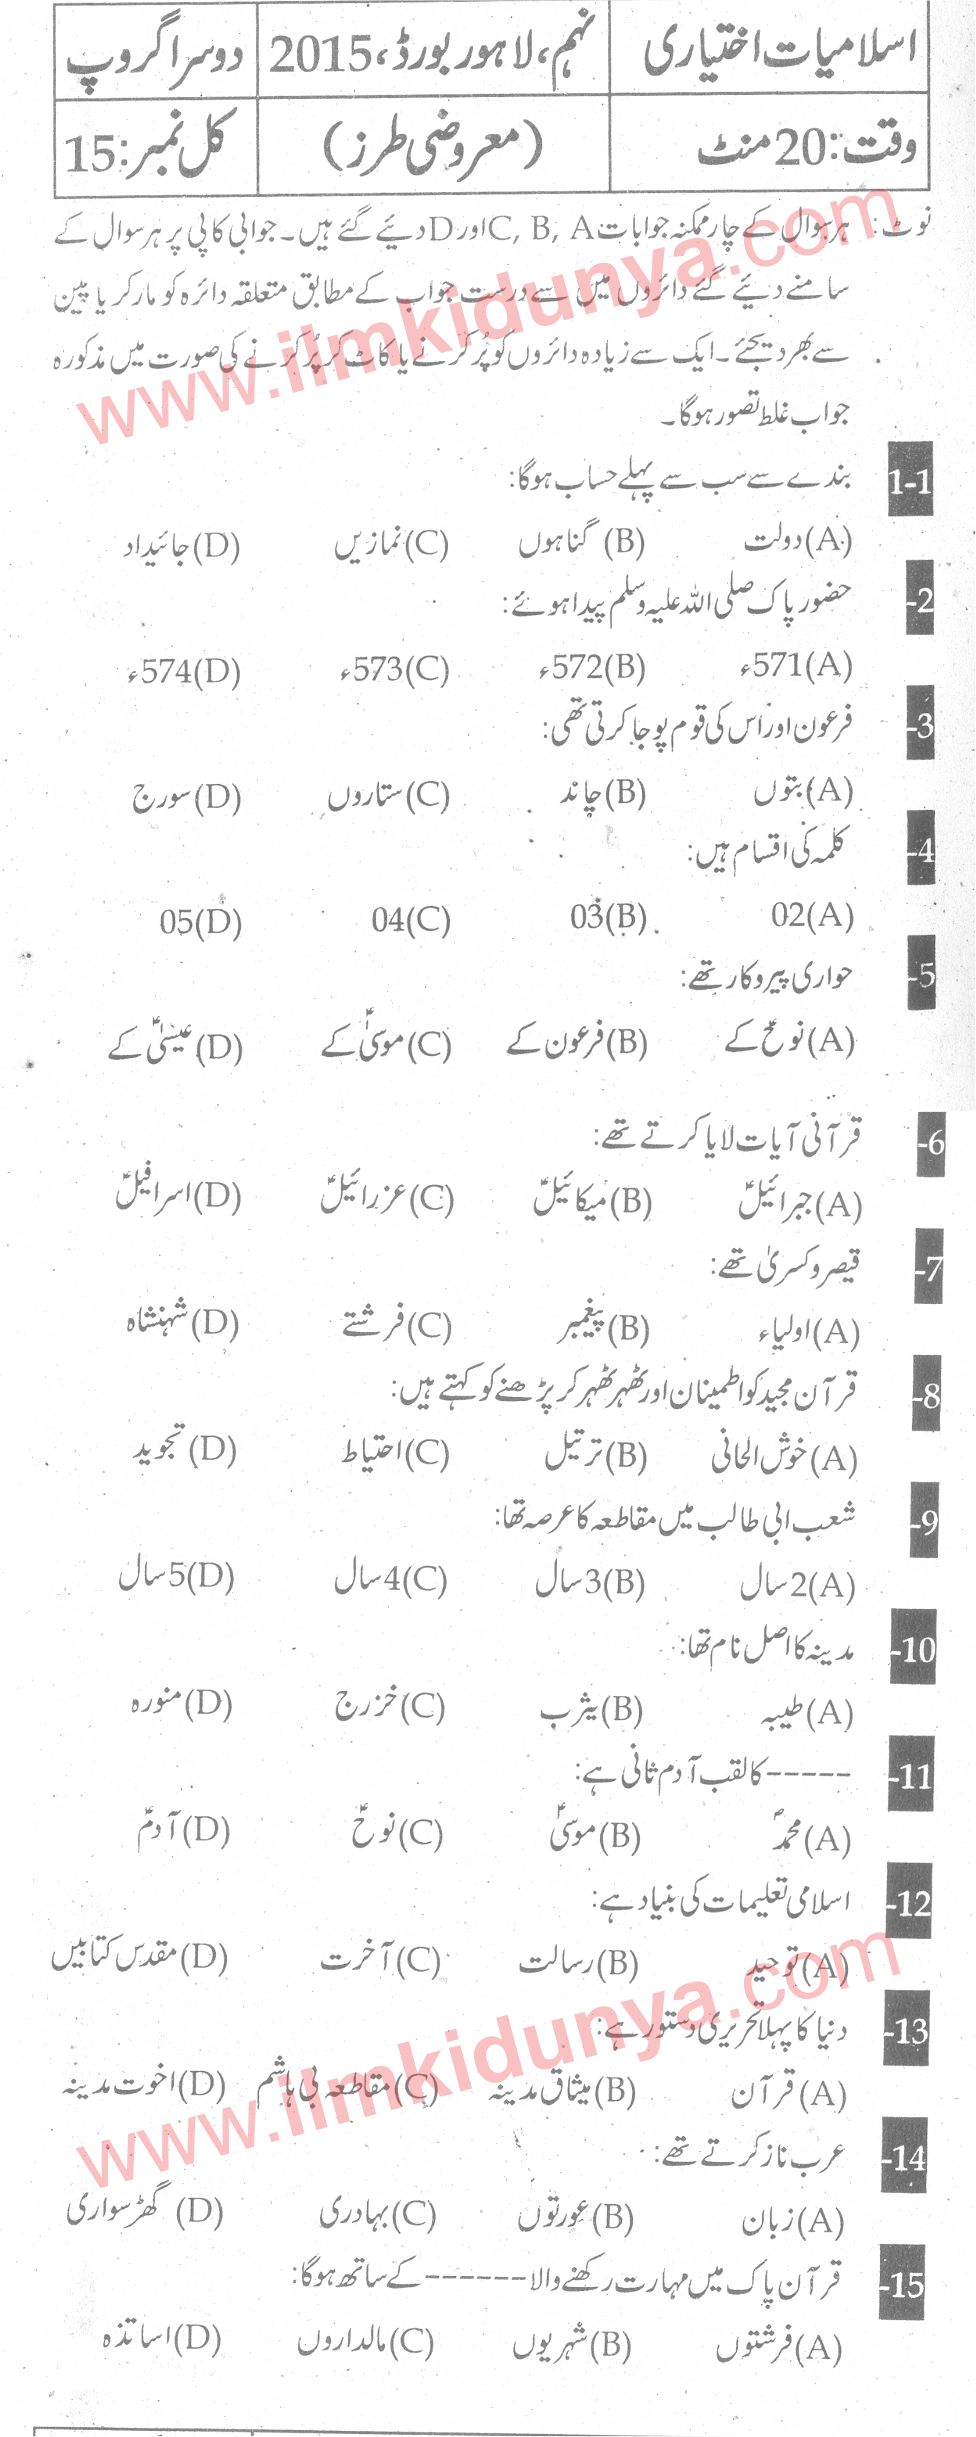 اسلامیات اختیاری نہم، لاہور بورڈ، 2015 دوسرا گروپ
وقت: 20 منٹ (معروضی طرز) کل نمبر: 15
نوٹ: ہر سوال کے چار ممکنہ جوابات C, B, A اور D دیئے گئے ہیں۔ جوابی کاپی پر ہر سوال کے
سامنے دیئے گئے دائروں میں سے درست جواب کے مطابق متعلقہ دائرہ کو مارکر یا پین
سے بھر دیجئے۔ ایک سے زیادہ دائروں کو پُر کرنے یا کاٹ کر پُر کرنے کی صورت میں مذکورہ
جواب غلط تصور ہوگا۔
www.ilmkidunya.com
1-1 بندے سے سب سے پہلے حساب ہوگا:
(A) دولت (B) گناہوں (C) نمازیں (D) جائیداد
-2 حضور پاک صلی اللہ علیہ وسلم پیدا ہوئے:
(A) 571ء (B) 572ء (C) 573ء (D) 574ء
-3 فرعون اور اس کی قوم پوجا کرتی تھی:
(A) بتوں (B) چاند (C) ستاروں (D) سورج
-4 کلمہ کی اقسام ہیں:
(A) 02 (B) 03 (C) 04 (D) 05
-5 حواری پیروکار تھے:
(A) نوحؑ کے (B) فرعون کے (C) موسیٰؑ کے (D) عیسیٰؑ کے
-6 قرآنی آیات لایا کرتے تھے:
(A) جبرائیلؑ (B) میکائیلؑ (C) عزرائیلؑ (D) اسرافیلؑ
-7 قیصر و کسریٰ تھے:
(A) اولیاء (B) پیغمبر (C) فرشتے (D) شہنشاہ
-8 قرآن مجید کو اطمینان اور ٹھہر ٹھہر کر پڑھنے کو کہتے ہیں:
(A) خوش الحانی (B) ترتیل (C) احتیاط (D) تجوید
-9 شعب ابی طالب میں مقاطعہ کا عرصہ تھا:
(A) 2 سال (B) 3 سال (C) 4 سال (D) 5 سال
-10 مدینہ کا اصل نام تھا:
(A) طیبہ (B) یثرب (C) خزرج (D) منورہ
-11 ----- کا لقب آدم ثانی ہے:
(A) محمدؐ (B) موسیٰؑ (C) نوحؑ (D) آدمؑ
-12 اسلامی تعلیمات کی بنیاد ہے:
(A) توحید (B) رسالت (C) آخرت (D) مقدس کتابیں
www.ilmkidunya.com
-13 دنیا کا پہلا تحریری دستور ہے:
(A) قرآن (B) میثاق مدینہ (C) مقاطعہ بنی ہاشم (D) اخوت مدینہ
-14 عرب ناز کرتے تھے:
(A) زبان (B) عورتوں (C) بہادری (D) گھڑ سواری
-15 قرآن پاک میں مہارت رکھنے والا ------ کے ساتھ ہوگا:
(A) فرشتوں (B) شہریوں (C) مالداروں (D) اساتذہ